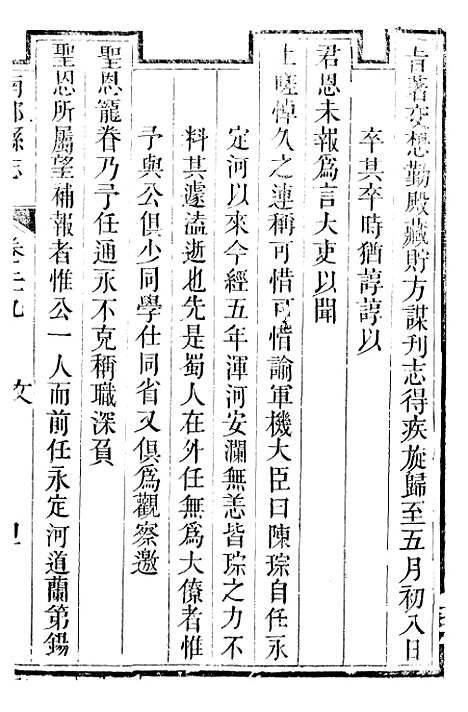 旨著交懋勤殿藏貯方謀刋志得疾旋歸至五月初八日
卒其卒時猶諄諄以
君恩未報爲言大吏以聞
上嗟悼久之連稱可惜可惜諭軍機大臣曰陳琮自任永
定河以來今經五年渾河安瀾無恙皆琮之力不
料其遽溘逝也先是蜀人在外任無爲大僚者惟
予與公俱少同學仕同省又俱爲觀察邀
聖恩寵眷乃予任通永不克稱職深負
聖恩所屬望補報者惟公一人而前任永定河道蘭第錫
南部縣志
卷二十九
文